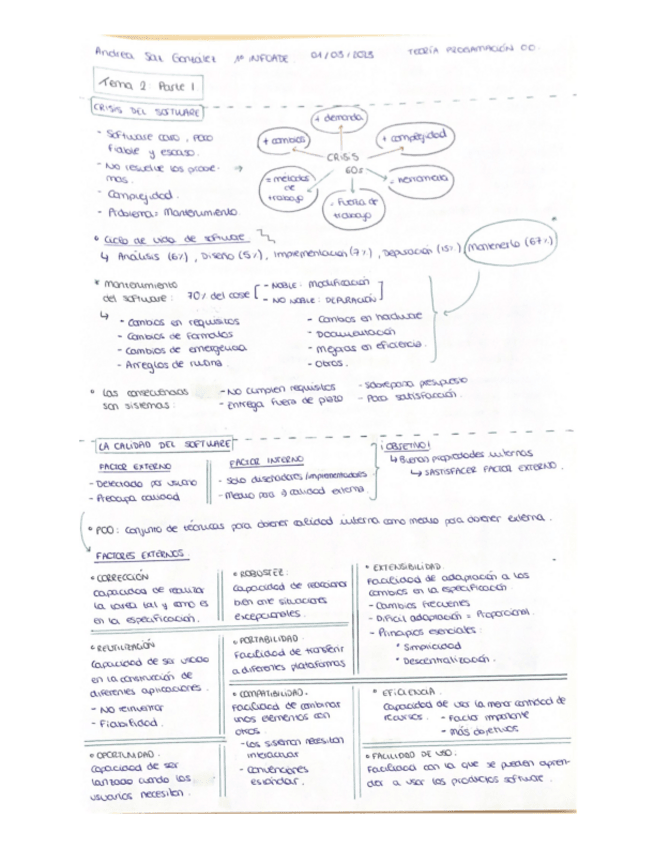 Andrea Saz González 1º INFOADE 01/03/2023 TEORÍA PROGRAMACIÓN OO.
Tema 2 Parte 1
CRISIS DEL SOFTWARE
- Software caro, pero
fiable y escaso.
- No resuelve los proble-
mas.
- Complejidad.
- Problema: Mantenimiento
CRISIS
60s
+ demanda
+ cambios
+ complejidad
= métodos
de
trabajo
- Fuerza de
trabajo
- herramienta
• Ciclo de vida de software
↳ Análisis (6%), Diseño (5%), Implementación (7%), Depuración (15%), Mantenerlo (67%)
* Mantenimiento
del software: 70% del coste
- NOBLE: Modificación
- NO NOBLE: DEPURACIÓN
↳ - Cambios en requisitos
- Cambios de Formatos
- Cambios de emergencia
- Arreglos de rutina.
- Cambios en hardware
- Documentación
- Mejoras en eficiencia.
- Otros.
• Las consecuencias
son sistemas:
- No cumplen requisitos
- Entrega fuera de plazo
- Sobrepasa presupuesto
- Poca satisfacción.
LA CALIDAD DEL SOFTWARE
FACTOR EXTERNO
- Detectado por usuario
- Preocupa calidad
FACTOR INTERNO
- Solo diseñadores/implementadores
- Medio para calidad externa
¡OBJETIVO!
↳ Buenas propiedades internas
↳ SASTISFACER FACTOR EXTERNO.
• POO: Conjunto de técnicas para obtener calidad interna como medio para obtener externa.
FACTORES EXTERNOS:
• CORRECCIÓN
Capacidad de realizar
la tarea tal y como es
en la especificación.
• ROBUSTEZ:
Capacidad de reaccionar
bien ante situaciones
excepcionales.
• EXTENSIBILIDAD:
Facilidad de adaptación a los
cambios en la especificación
- Cambios frecuentes
- Difícil adaptación = Proporcional.
- Principios esenciales:
* Simplicidad
* Descentralización.
• REUTILIZACIÓN
Capacidad de ser usado
en la construcción de
diferentes aplicaciones.
- No reinventar
- Fiabilidad.
• PORTABILIDAD
Facilidad de transferir
a diferentes plataformas
• COMPATIBILIDAD.
Facilidad de combinar
unos elementos con
otros.
- Los sistemas necesitan
interactuar
- Convenciones
estándar.
• EFICIENCIA.
Capacidad de usar la menor cantidad de
recursos. - Factor importante
- más objetivos
• OPORTUNIDAD.
Capacidad de ser
lanzado cuando los
usuarios necesiten.
• FACILIDAD DE USO:
Facilidad con la que se pueden apren-
der a usar los productos software.